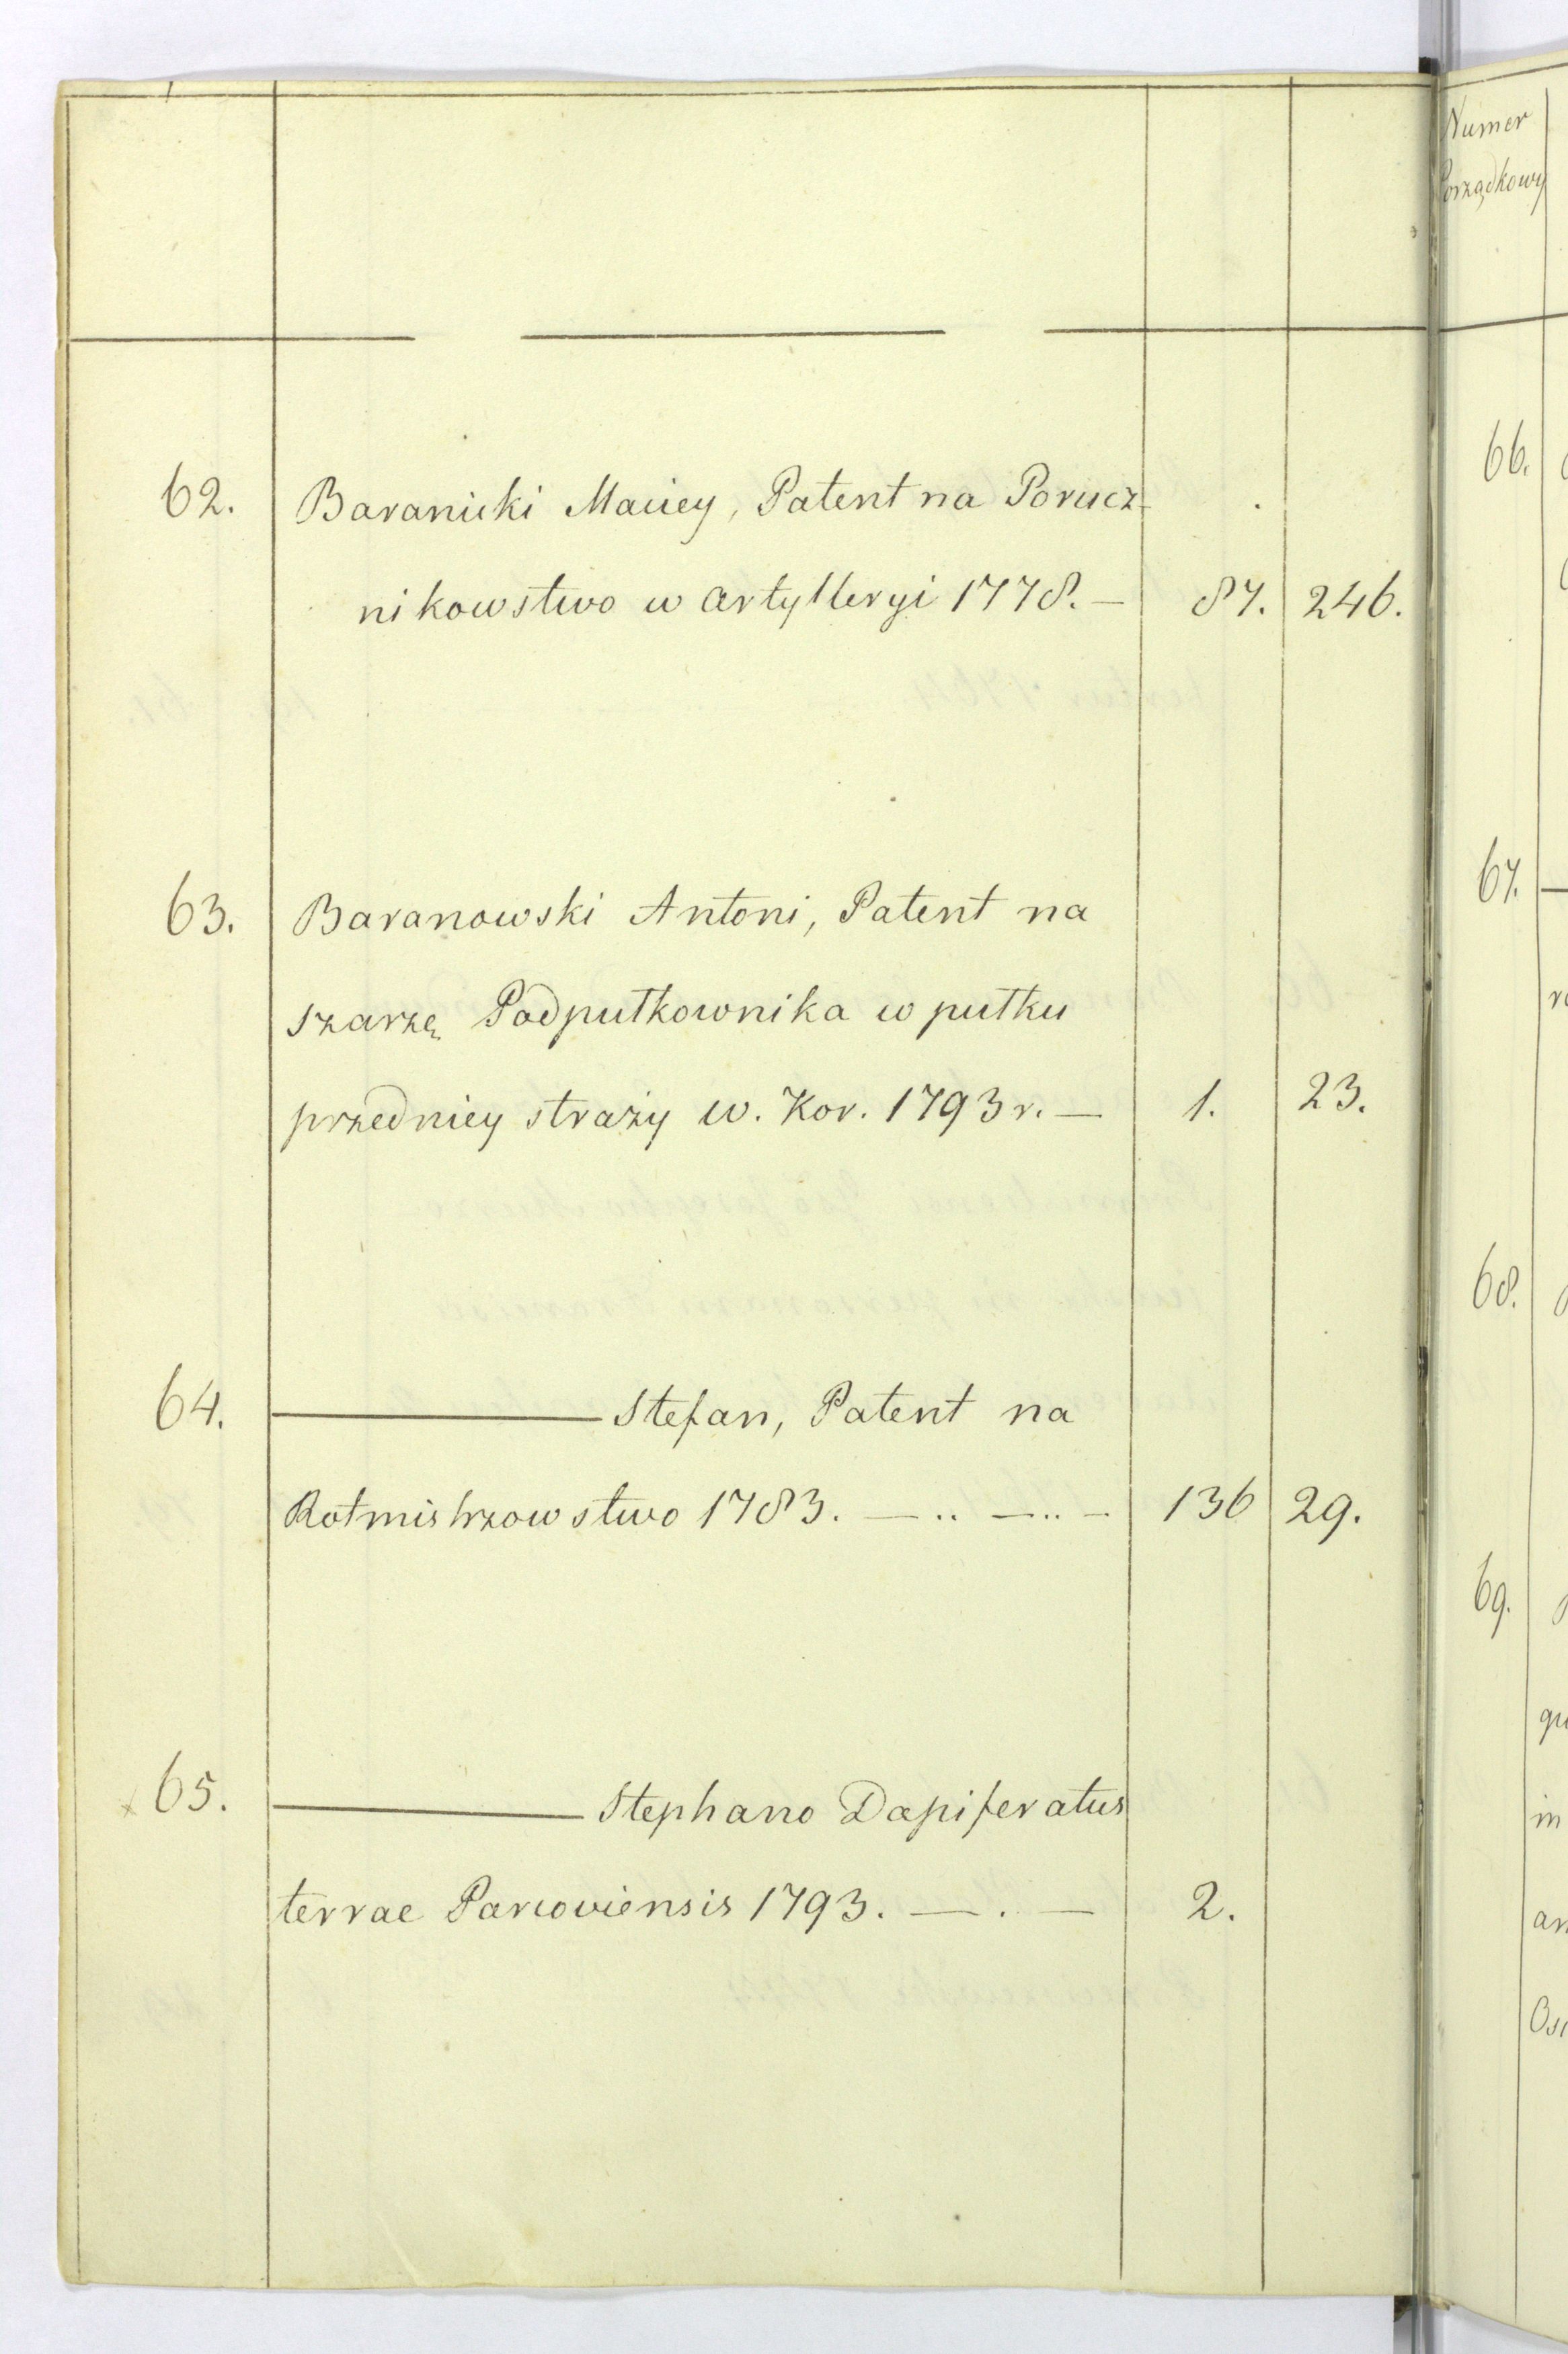 62. Baranicki Maciey, Patent na Porucz-
nikowstwo w artylleryi 1778. — 87. 246.
63. Baranowski Antoni, Patent na
szarżę Podpułkownika w pułku
przedniey straży w. Kor. 1793 r. — 1. 23.
64. ——— Stefan, Patent na
Rotmistrzowstwo 1783. — .. — .. — 136 29.
65. ——— Stephano Dapiferatus
terrae Parcoviensis 1793. — . — 2.
Numer
Porządkowy
66.
67.
68.
69.